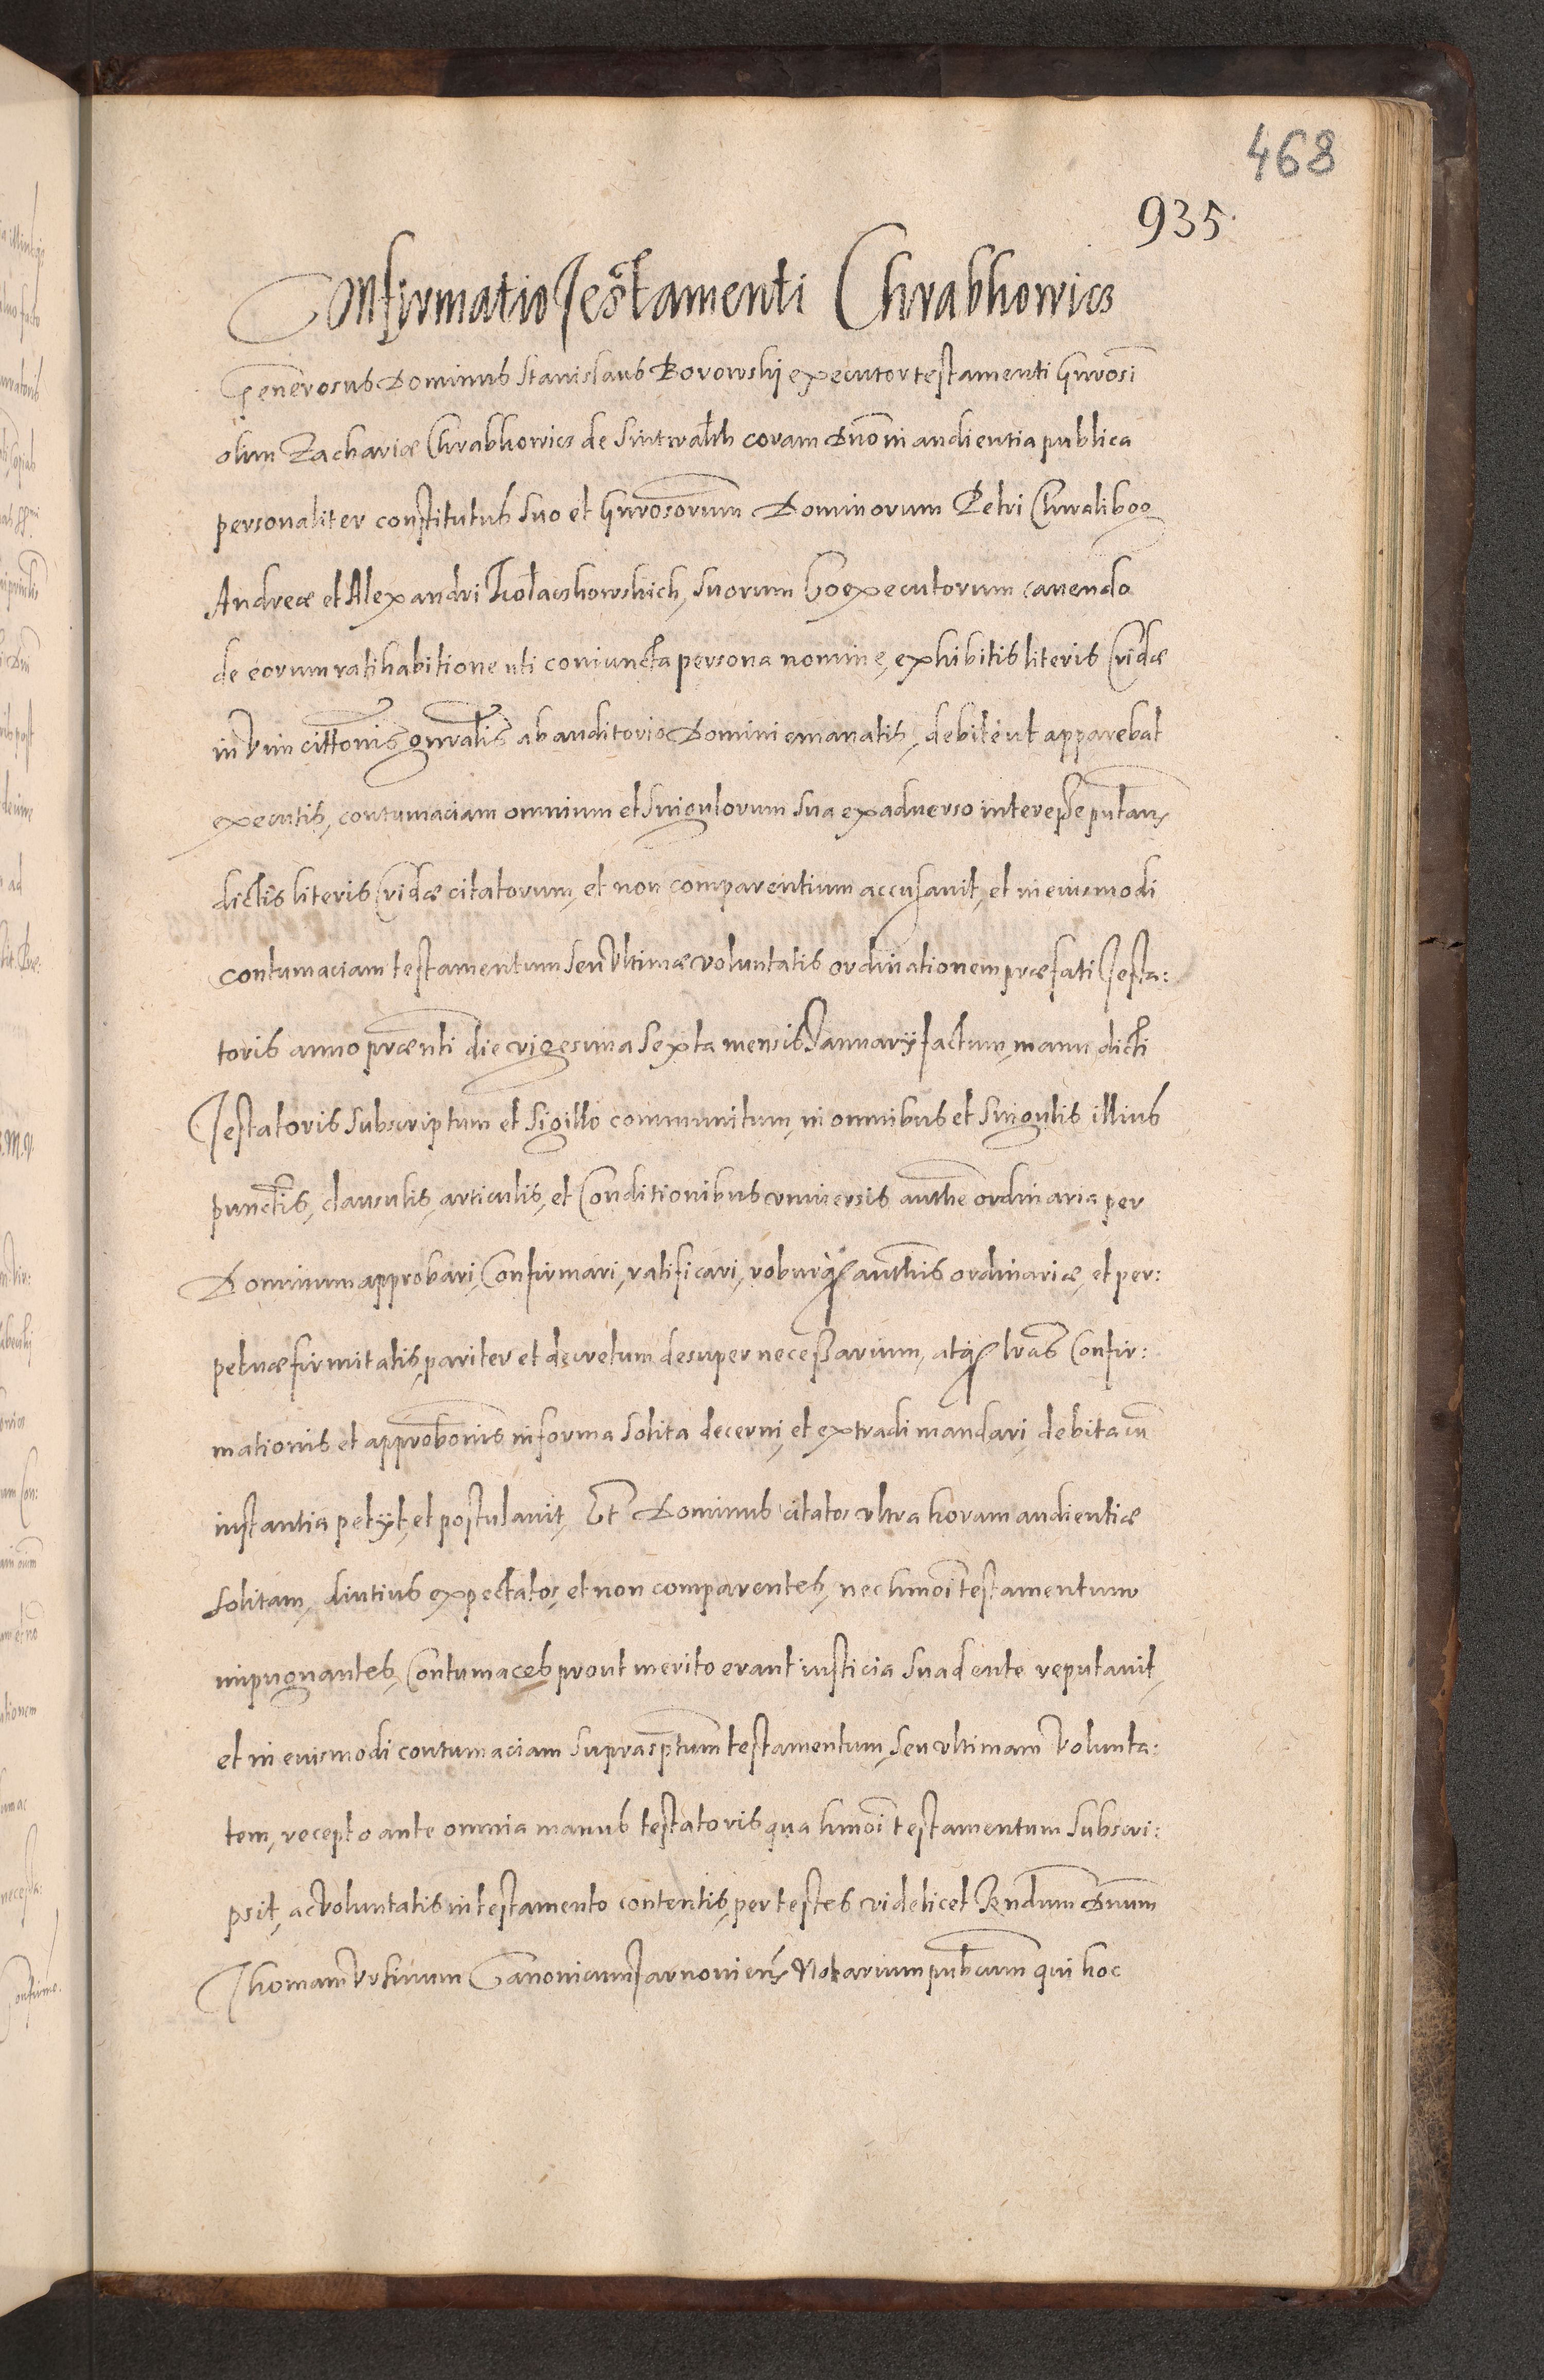 468
935.
Confirmatio Testamenti Chrabkowics
Generosus Dominus Stanislaus Borowski executor testamenti Gnrosi
olim Zachariæ Chrabkowics de coram Dno in audientia publica
personaliter constitutus suo et Gnrosorum Dominorum Petri Chwalibog
Andreæ et Alexandri suorum Coexecutorum cauendo
de eorum ratihabitione uti coniuncta persona nomine, exhibitis literis Cridæ
in Vim cittonis gnralis ab auditorio Domini emanatis, debite ut apparebat
executis, contumaciam omnium et singulorum sua ex aduerso interesse putan,
dictis literis Cridæ citatorum, et non comparentium accusauit, et in eiusmodi
contumaciam testamentum seu Vltimæ voluntatis ordinationem præfati Testa:
toris anno præsenti die vigesima sexta mensis Januarij factum, manu dicti
Testatoris subscriptum et sigillo communitum, in omnibus et singulis illius
punctis, clausulis, articulis, et Conditionibus vniuersis authe ordinaria per
Dominum approbari, Confirmari, ratificari, roburq3 authis ordinariæ, et per:
petuæ firmitatis, pariter et decretum desuper necessarium, atq3 lras Confir:
mationis et approbonis in forma solita decerni, et extradi mandari, debita cũ
instantia petijt, et postulauit, Et Dominus citatos vltra horam audientiæ
solitam, diutius expectatos, et non comparentes, nec hmoi testamentum
impugnantes, Contumaces prout merito erant iusticia suadente reputauit,
et in eiusmodi contumaciam suprasptum testamentum, seu vltimam Volunta:
tem, recepto ante omnia manus testatoris qua hmoi testamentum subscri:
psit, ac Voluntatis in testamento contentis, per testes videlicet Rendum Dnum
Thomam Vrsinum Canonicum Tarnouien, Notarium publicum qui hoc